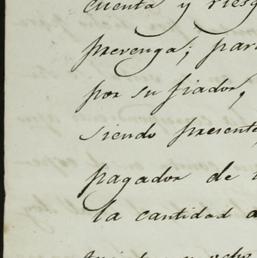 cuenta y riesg
prevenga; par
por su fiador,
siendo presente
pagador de
la cantidad d